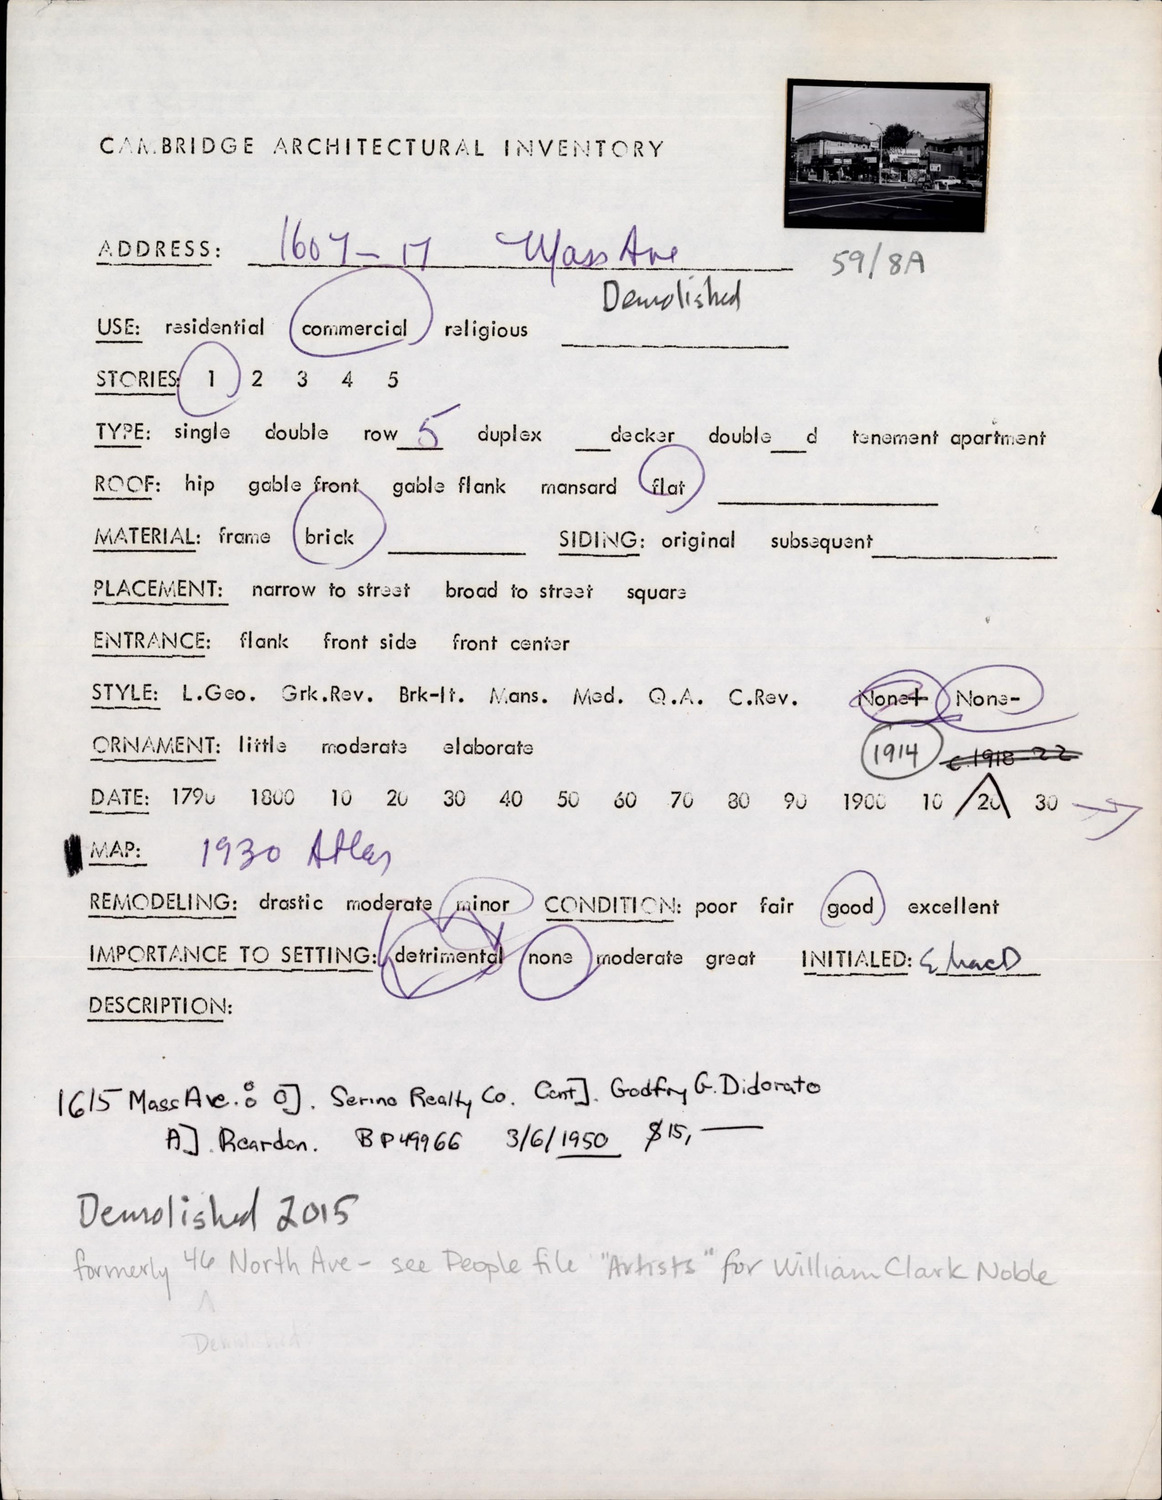 CAMBRIDGE ARCHITECTURAL INVENTORY
ADDRESS: 1607-17 Mass Ave
59/8A
Demolished
USE: residential commercial religious
STORIES: 1 2 3 4 5
TYPE: single double row 5 duplex __decker double__d tenement apartment
ROOF: hip gable front gable flank mansard flat
MATERIAL: frame brick SIDING: original subsequent
PLACEMENT: narrow to street broad to street square
ENTRANCE: flank front side front center
STYLE: L.Geo. Grk.Rev. Brk-It. Mans. Med. Q.A. C.Rev. None+ None-
ORNAMENT: little moderate elaborate 1914 c.1918-22
DATE: 1790 1800 10 20 30 40 50 60 70 80 90 1900 10 20 30
MAP: 1930 Atlas
REMODELING: drastic moderate minor CONDITION: poor fair good excellent
IMPORTANCE TO SETTING: detrimental none moderate great INITIALED: E MacD
DESCRIPTION:
1615 Mass Ave.: O]. Serino Realty Co. Cont]. Godfry G. Didorato
A]. Reardon. BP49966 3/6/1950 $15,—
Demolished 2015
formerly 46 North Ave - see People file "Artists" for William Clark Noble
Demolished